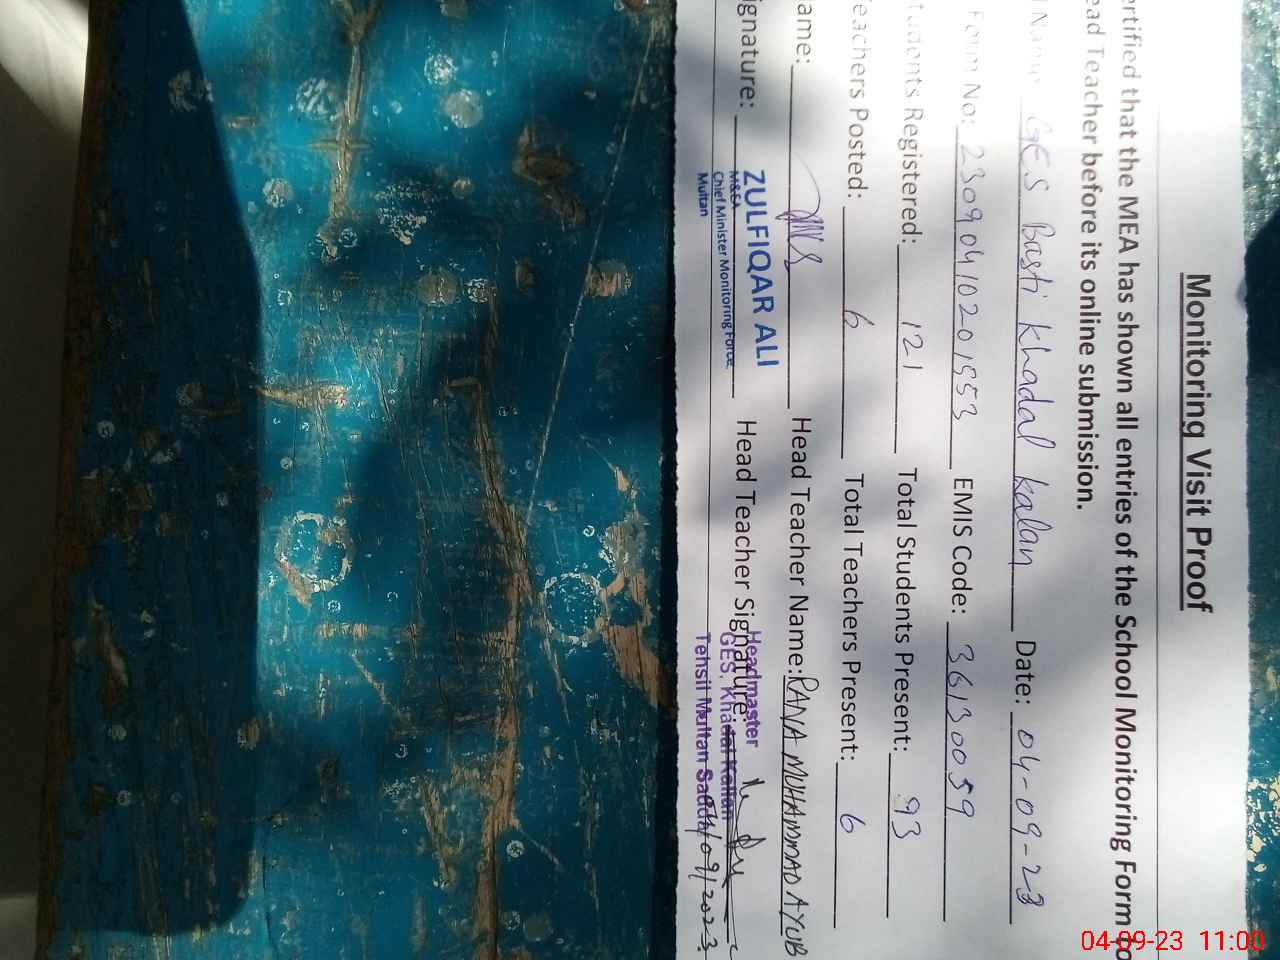 Monitoring Visit Proof
ertified that the MEA has shown all entries of the School Monitoring Form to
ead Teacher before its online submission.
Name GES Basti Khadal Kalan Date: 04-09-23
Form No: 23090410201553 EMIS Code: 36130059
tudents Registered: 121 Total Students Present: 93
eachers Posted: 6 Total Teachers Present: 6
ame: Head Teacher Name: RANA MUHAMMAD AYUB
ignature: Head Teacher Signature:
ZULFIQAR ALI
M&EA
Chief Minister Monitoring Force
Multan
Headmaster
GES, Khadal Kallan
Tehsil Multan Saddar
04/09/2023
04-09-23 11:00